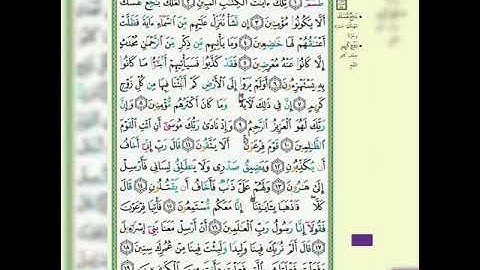 طسٓمٓ ١ تِلۡكَ ءَايَٰتُ ٱلۡكِتَٰبِ ٱلۡمُبِينِ ٢ لَعَلَّكَ بَٰخِعٞ نَّفۡسَكَ
أَلَّا يَكُونُواْ مُؤۡمِنِينَ ٣ إِن نَّشَأۡ نُنَزِّلۡ عَلَيۡهِم مِّنَ ٱلسَّمَآءِ ءَايَةٗ فَظَلَّتۡ
أَعۡنَٰقُهُمۡ لَهَا خَٰضِعِينَ ٤ وَمَا يَأۡتِيهِم مِّن ذِكۡرٖ مِّنَ ٱلرَّحۡمَٰنِ مُحۡدَثٍ
إِلَّا كَانُواْ عَنۡهُ مُعۡرِضِينَ ٥ فَقَدۡ كَذَّبُواْ فَسَيَأۡتِيهِمۡ أَنۢبَٰٓؤُاْ مَا كَانُواْ
بِهِۦ يَسۡتَهۡزِءُونَ ٦ أَوَلَمۡ يَرَوۡاْ إِلَى ٱلۡأَرۡضِ كَمۡ أَنۢبَتۡنَا فِيهَا مِن كُلِّ زَوۡجٖ
كَرِيمٍ ٧ إِنَّ فِي ذَٰلِكَ لَأٓيَةٗۖ وَمَا كَانَ أَكۡثَرُهُم مُّؤۡمِنِينَ ٨ وَإِنَّ
رَبَّكَ لَهُوَ ٱلۡعَزِيزُ ٱلرَّحِيمُ ٩ وَإِذۡ نَادَىٰ رَبُّكَ مُوسَىٰٓ أَنِ ٱئۡتِ ٱلۡقَوۡمَ
ٱلظَّٰلِمِينَ ١٠ قَوۡمَ فِرۡعَوۡنَۚ أَلَا يَتَّقُونَ ١١ قَالَ رَبِّ إِنِّيٓ أَخَافُ
أَن يُكَذِّبُونِ ١٢ وَيَضِيقُ صَدۡرِي وَلَا يَنطَلِقُ لِسَانِي فَأَرۡسِلۡ
إِلَىٰ هَٰرُونَ ١٣ وَلَهُمۡ عَلَيَّ ذَنۢبٞ فَأَخَافُ أَن يَقۡتُلُونِ ١٤ قَالَ
كَلَّاۖ فَٱذۡهَبَا بِـَٔايَٰتِنَآۖ إِنَّا مَعَكُم مُّسۡتَمِعُونَ ١٥ فَأۡتِيَا فِرۡعَوۡنَ
فَقُولَآ إِنَّا رَسُولُ رَبِّ ٱلۡعَٰلَمِينَ ١٦ أَنۡ أَرۡسِلۡ مَعَنَا بَنِيٓ إِسۡرَٰٓءِيلَ
١٧ قَالَ أَلَمۡ نُرَبِّكَ فِينَا وَلِيدٗا وَلَبِثۡتَ فِينَا مِنۡ عُمُرِكَ سِنِينَ ١٨